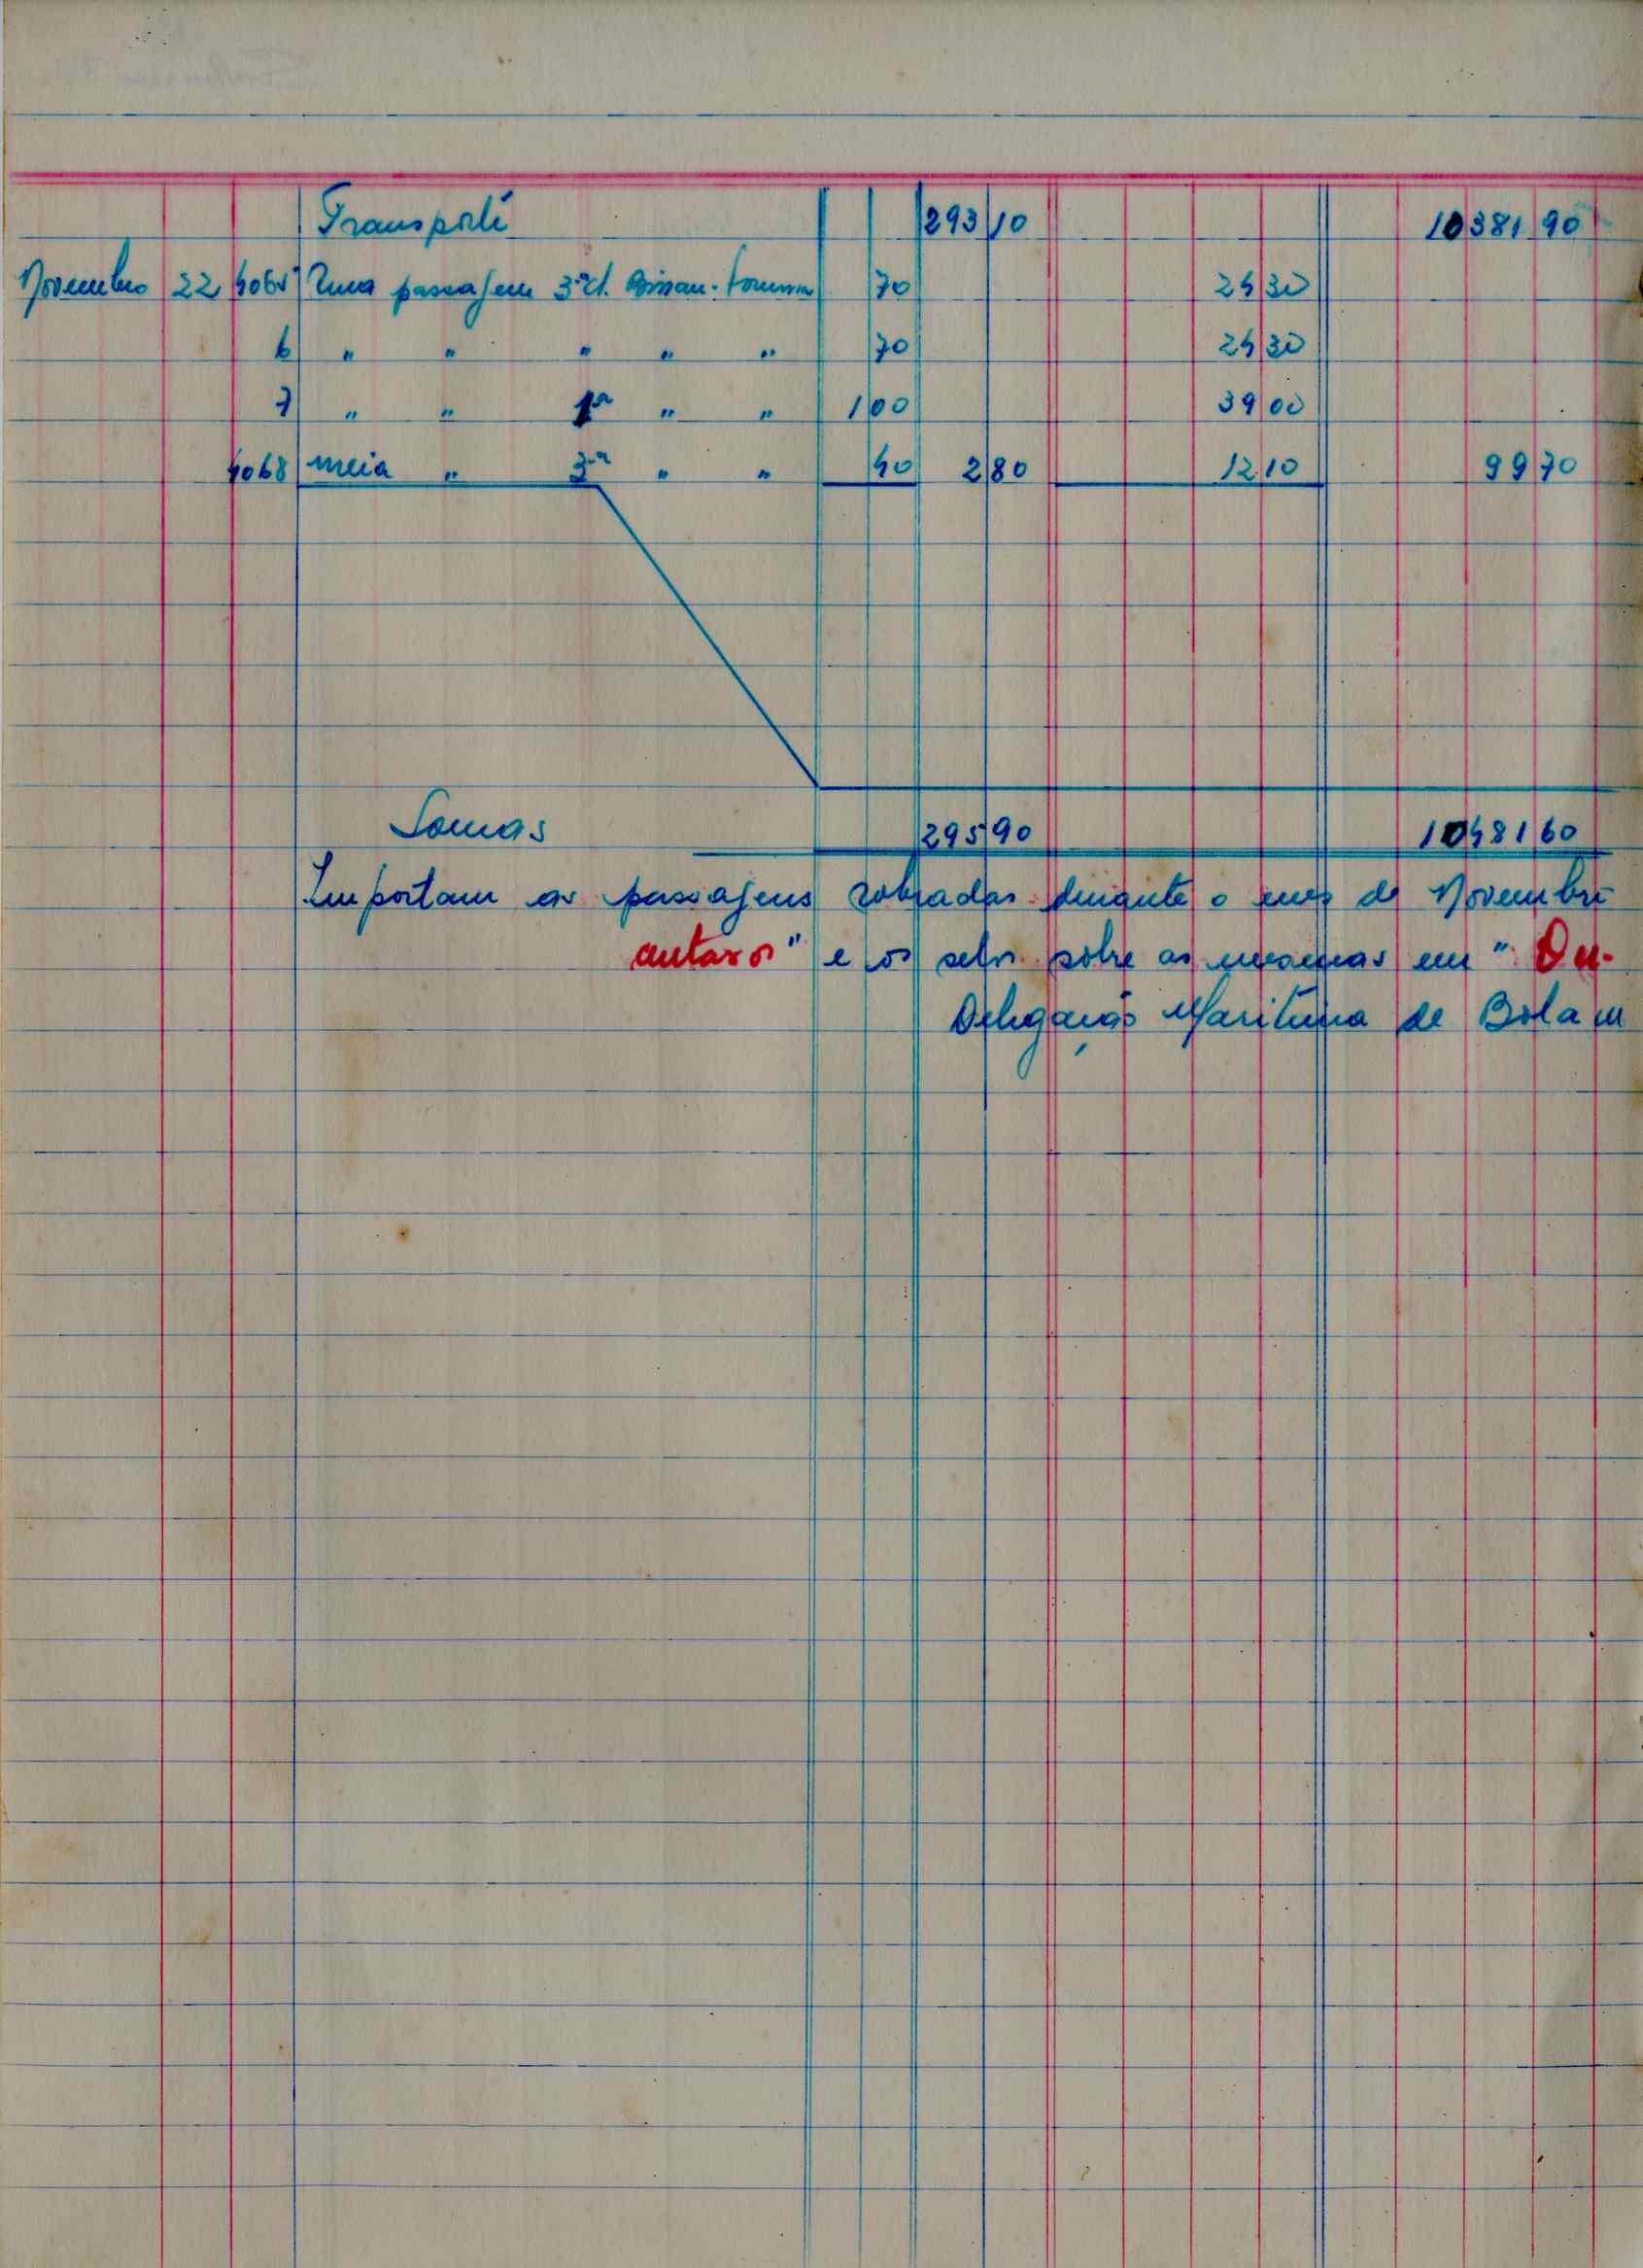 Transporte 293 10 10381 90
Novembro 22 4065 Uma passagem 3ª cl. Bissau- 70 24 30
6 " " " " " 70 24 30
7 " " 1ª " " 1 00 39 00
4068 meia " 3ª " " 40 2 80 12 10 99 70
Somas 295 90 10481 60
Importam as passagens cobradas durante o mês de Novembro
centavos" e os selos sôbre as mesmas em "Du-
Delegação Maritima de Bolam